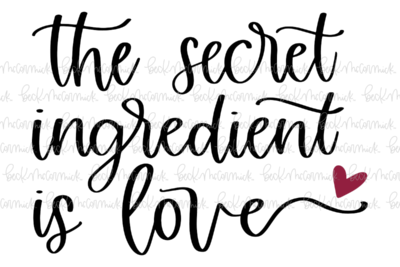 the secret
ingredient
is love